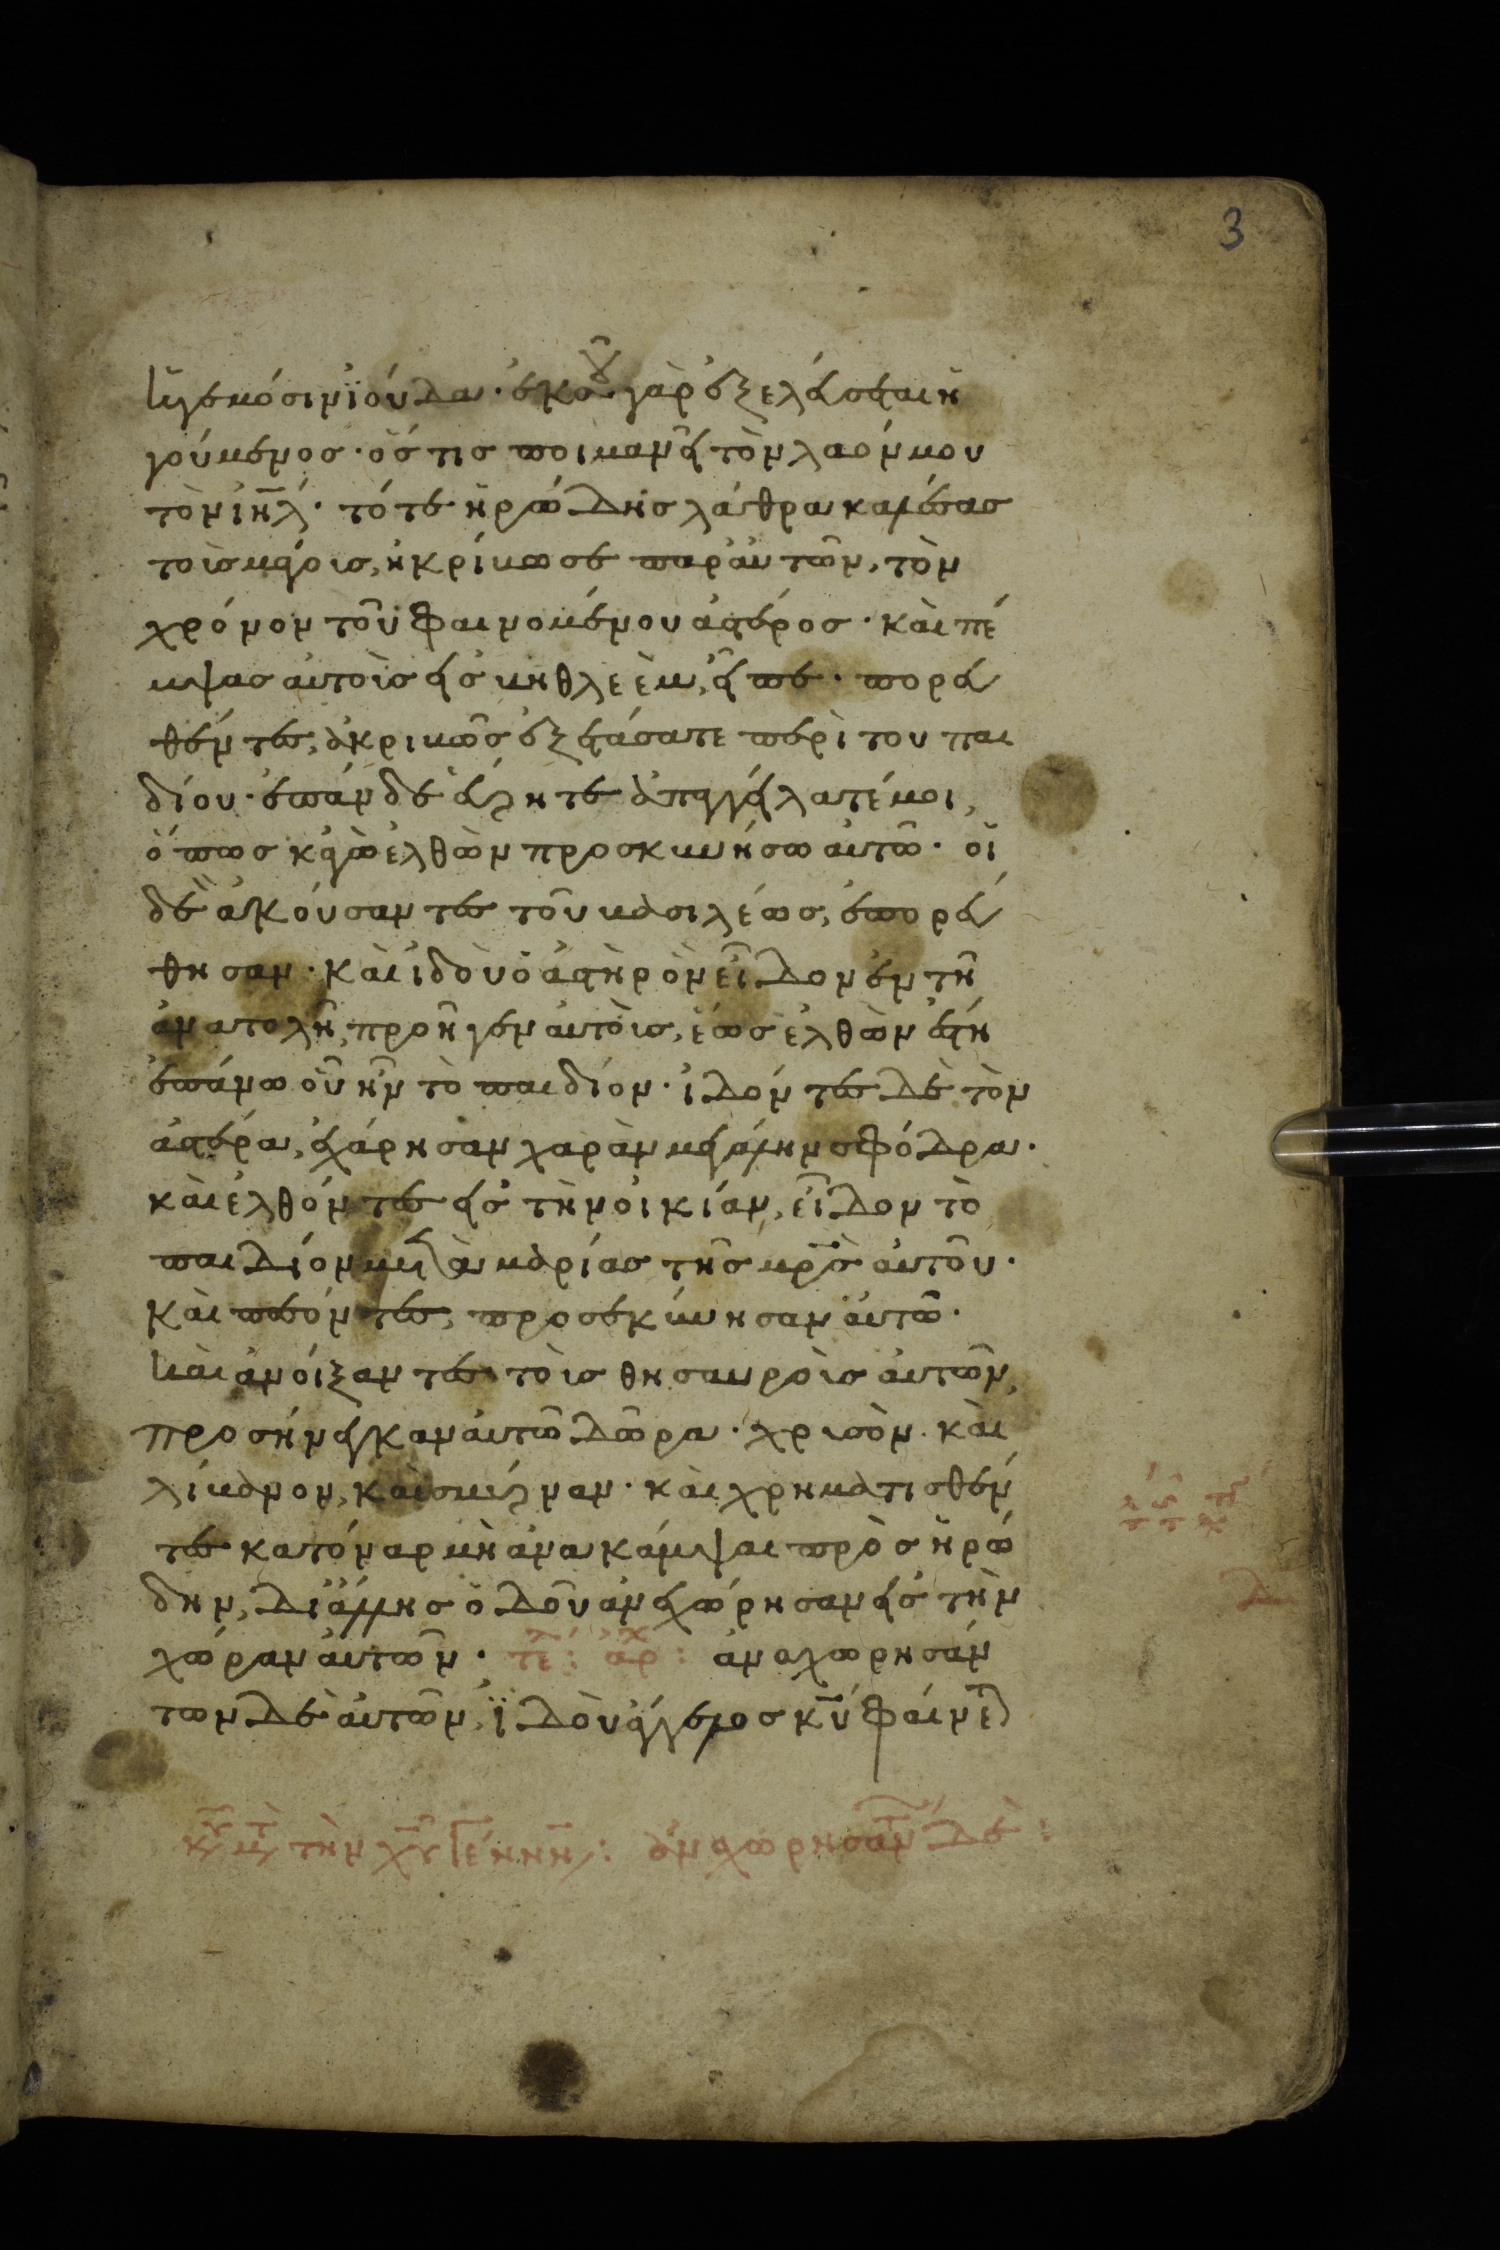 3
ἡγεμόσιν ἰούδα· ἐκ σοῦ γὰρ ἐξελεύσεται ἡ
γούμενος· ὅστις ποιμανεῖ τὸν λαόν μου
τὸν ιη̅λ· τότε ἡρώδης λάθρα καλέσας
τοὶς μάγοις, ἠκρίβωσε παρ' αὐτῶν, τὸν
χρόνον τοῦ φαινομένου ἀστέρος· καὶ πέ
μψας αὐτοὶς εἰς βηθλεὲμ, εἶπε· πορευ
θέντες, ἀκριβῶς ἐξετάσατε περὶ του παι
δίου· ἐπὰν δὲ εὕρητε ἀπαγγείλατέ μοι,
ὅπως κἀγὼ ἐλθὼν προσκυνήσω αὐτῶ· οἱ
δὲ ἀκούσαντες τοῦ βασιλέως, ἐπορεύ
θησαν· καὶ ἰδοὺ ὁ ἀστὴρ ὸν εἶδον ἐν τῆ
ἀνατολῆ, προῆγεν αὐτοὶς, ἕως ἐλθὼν ἔστη
ἐπάνω οὗ ἦν τὸ παιδίον· ἰδόντες δὲ τὸν
ἀστέρα, ἐχάρησαν χαρὰν μεγάλην σφόδρα·
καὶ ἐλθόντες εἰς τὴν οἰκίαν, εἶδον τὸ
παιδίον μετὰ μαρίας τῆς μρ̅ς αὐτοῦ·
καὶ πεσόντες, προσεκύνησαν αὐτῶ·
καὶ ἀνοίξαντες τοὶς θησαυροὶς αὐτῶν,
προσήνεγκαν αὐτῶ δῶρα· χρισὸν· καὶ
λίβανον, καὶ σμύρναν· καὶ χρηματισθέν
τες κατ' όναρ μὴ ἀνακάμψαι πρὸς ἡρώ
δην, δι' ἄλλης ὁδοῦ ἀνεχώρησαν εἰς τὴν
χώραν αὐτῶν· τέ: ἀρχ: ἀναχωρησάν
των δὲ αὐτῶν, ἰδοὺ ἄγγελος κυ̅ φαίνε
τὴν χυ̅ γέννην: ἀναχωρησάντων δὲ: